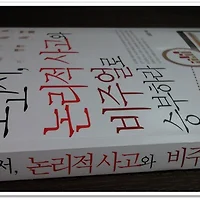 보고서,
논리적 사고와
비주얼로
승부하라
서, 논리적 사고와 비주